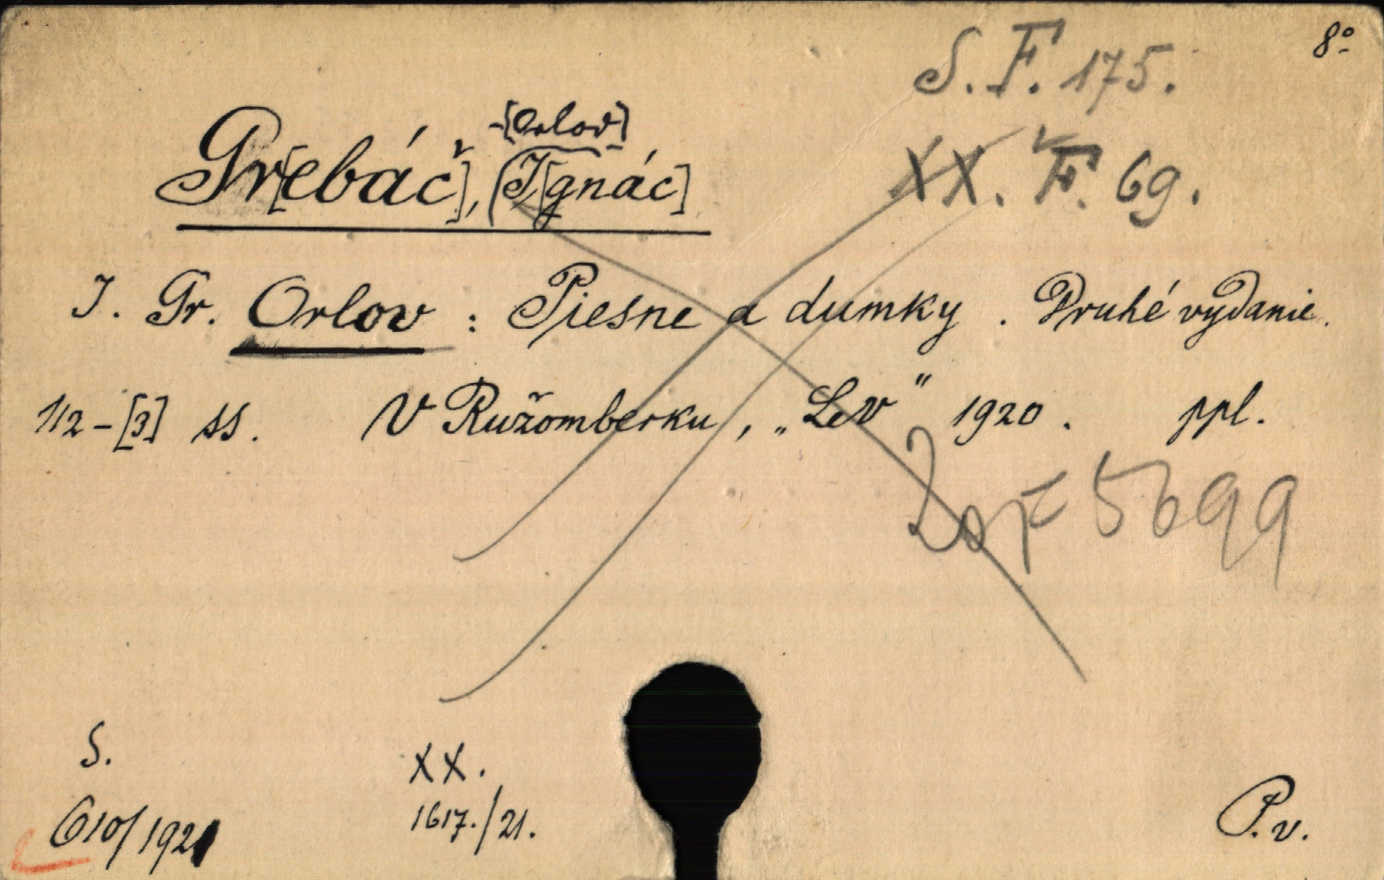 8°
S. F. 175.
XX. F. 69.
-[Orlov]
Gr[ebáč], (I[gnác]
J. Gr. Orlov : Piesne a dumky . Druhé vydanie.
112-[3] ss. V Ružomberku, „Lev" 1920. ppl.
20 F 5699
S. XX.
610/1921 1617./21. P.v.